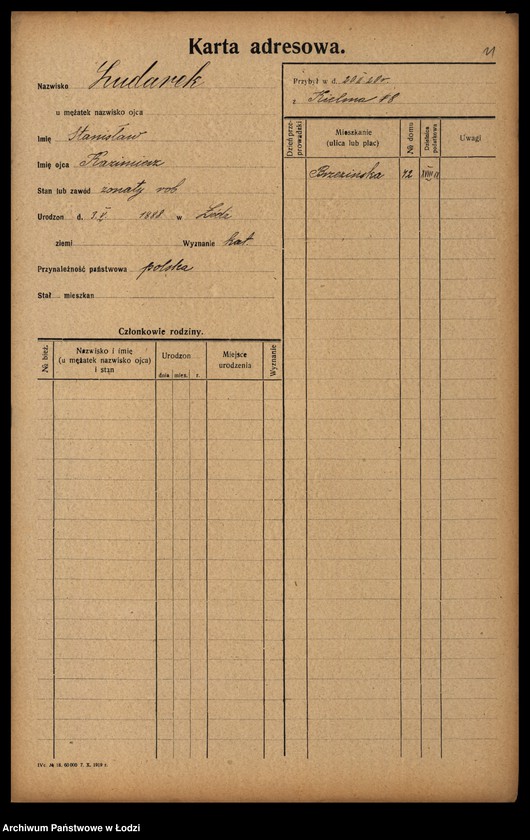 Karta adresowa.
11
Nazwisko Zudarek
u mężatek nazwisko ojca
Imię Stanisław
Imię ojca Kazimierz
Stan lub zawód żonaty rob
Urodzon d. 3.V 1888 w Łódź
ziemi Wyznanie kat.
Przynależność państwowa polska
Stał mieszkan
Przybył w d. 20 I 20 r
z Kielma 48
Dzień przeprowadzki
Mieszkanie (ulica lub plac)
№ domu
Dzielnica podatkowa
Uwagi
Brzezińska 42
Członkowie rodziny.
№ bież.
Nazwisko i imię (u mężatek nazwisko ojca) i stan
Urodzon
dnia mies. r.
Miejsce urodzenia
Wyznanie
Archiwum Państwowe w Łodzi